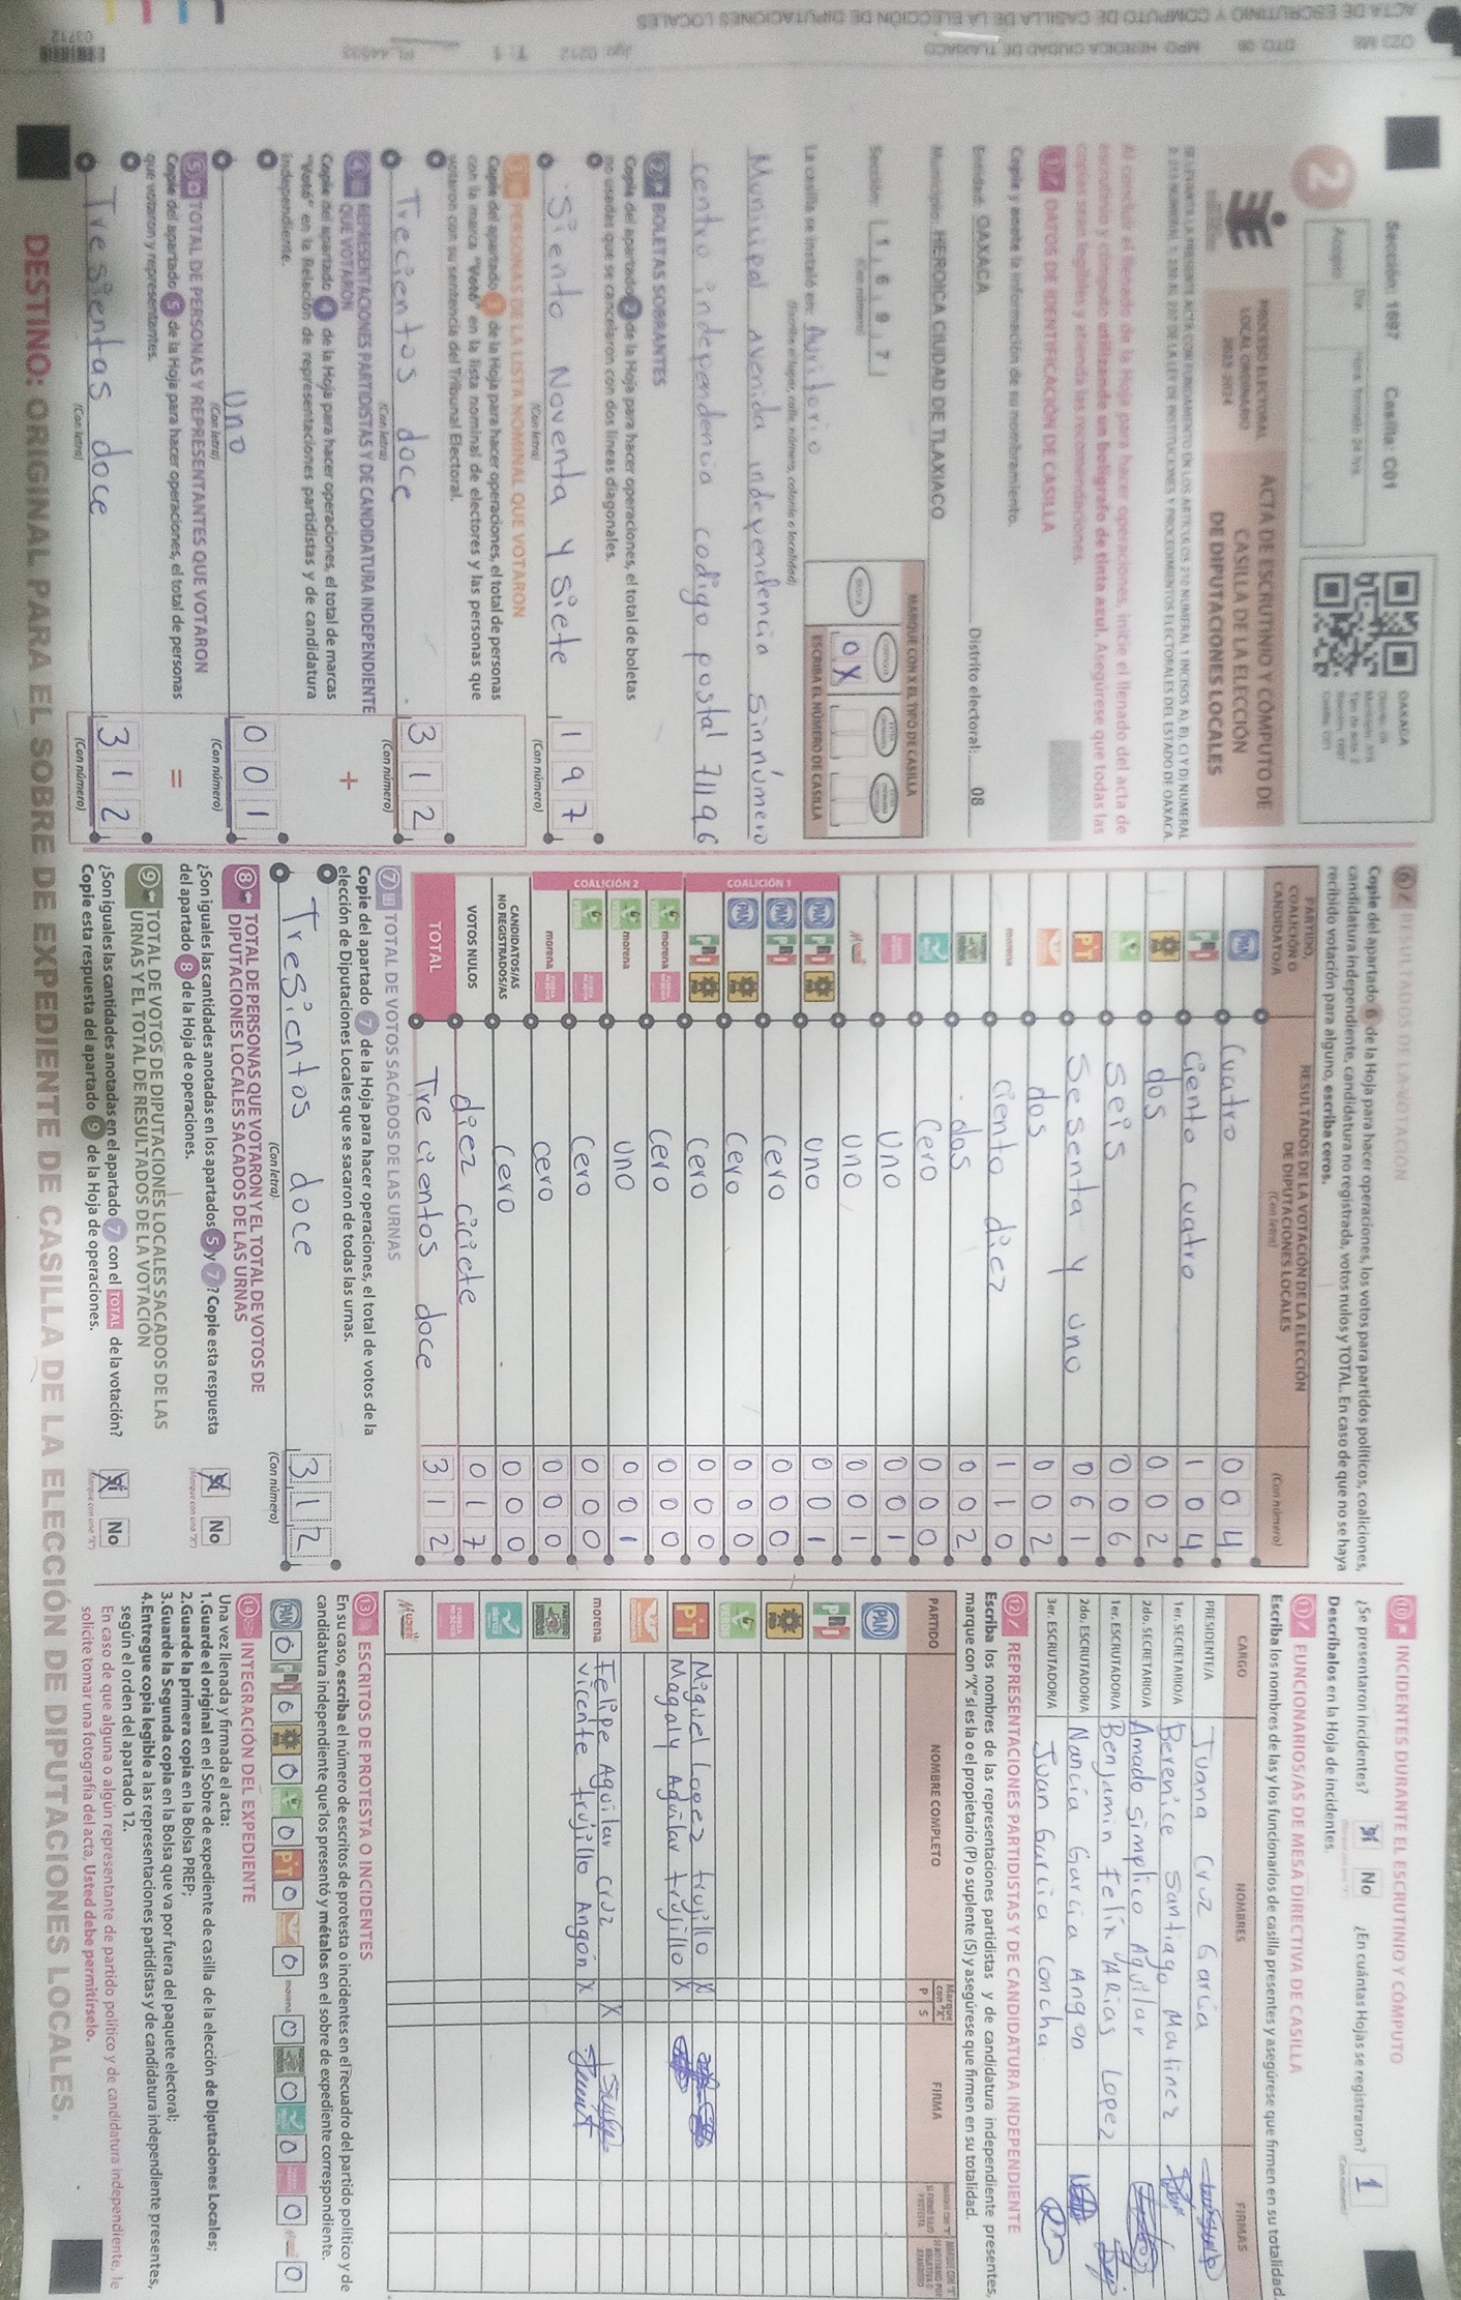 ACTA DE ESCRUTINIO Y CÓMPUTO DE CASILLA DE LA ELECCIÓN DE DIPUTACIONES LOCALES
Sección: 1697 Casilla: C01
2
Acopio
PROCESO ELECTORAL
LOCAL ORDINARIO
2023-2024
ACTA DE ESCRUTINIO Y CÓMPUTO DE
CASILLA DE LA ELECCIÓN
DE DIPUTACIONES LOCALES
OAXACA
Al concluir el llenado de la Hoja para hacer operaciones, inicie el llenado del acta de
escrutinio y cómputo utilizando un bolígrafo de tinta azul. Asegúrese que todas las
copias sean legibles y atienda las recomendaciones.
1 DATOS DE IDENTIFICACIÓN DE CASILLA
Copie y anote la información de su nombramiento.
Entidad: OAXACA Distrito electoral: 08
Municipio: HEROICA CIUDAD DE TLAXIACO
Sección: 1 6 9 7
(Con número)
MARQUE CON X EL TIPO DE CASILLA
ESCRIBA EL NÚMERO DE CASILLA
0 X
La casilla se instaló en: Auxitorio
(Escriba el lugar, calle, número, colonia o localidad)
Municipal avenida independencia sin número
centro independencia codigo postal 71196
2 BOLETAS SOBRANTES
Copie del apartado 2 de la Hoja para hacer operaciones, el total de boletas
no usadas que se cancelaron con dos líneas diagonales.
Siento Noventa y Siete 1 9 7
(Con letra) (Con número)
3 PERSONAS DE LA LISTA NOMINAL QUE VOTARON
Copie del apartado 3 de la Hoja para hacer operaciones, el total de personas
con la marca "Votó" en la lista nominal de electores y las personas que
votaron con su sentencia del Tribunal Electoral.
Trecientos doce 3 1 2
(Con letra) (Con número)
4 REPRESENTACIONES PARTIDISTAS Y DE CANDIDATURA INDEPENDIENTE
QUE VOTARON
Copie del apartado 4 de la Hoja para hacer operaciones, el total de marcas
"Votó" en la Relación de representaciones partidistas y de candidatura
independiente.
+
Uno 0 0 1
(Con letra) (Con número)
5 TOTAL DE PERSONAS Y REPRESENTANTES QUE VOTARON
Copie del apartado 5 de la Hoja para hacer operaciones, el total de personas
que votaron y representantes.
=
Tresientas doce 3 1 2
(Con letra) (Con número)
6 RESULTADOS DE LA VOTACIÓN
Copie del apartado 6 de la Hoja para hacer operaciones, los votos para partidos políticos, coaliciones,
candidatura independiente, candidatura no registrada, votos nulos y TOTAL. En caso de que no se haya
recibido votación para alguno, escriba ceros.
PARTIDO,
COALICIÓN O
CANDIDATO/A
RESULTADOS DE LA VOTACIÓN DE LA ELECCIÓN
DE DIPUTACIONES LOCALES
(Con letra)
(Con número)
PAN Cuatro 0 0 4
PRI Ciento cuatro 1 0 4
dos 0 0 2
Seis 0 0 6
PT Sesenta y uno 0 6 1
dos 0 0 2
morena Ciento diez 1 1 0
dos 0 0 2
Cero 0 0 0
Uno 0 0 1
Uno 0 0 1
COALICIÓN 1
PAN PRI Uno 0 0 1
PAN PRI Cero 0 0 0
PAN Cero 0 0 0
PRI Cero 0 0 0
COALICIÓN 2
morena Cero 0 0 0
morena Uno 0 0 1
Cero 0 0 0
morena cero 0 0 0
CANDIDATOS/AS
NO REGISTRADOS/AS Cero 0 0 0
VOTOS NULOS diez ciciete 0 1 7
TOTAL Trecientos doce 3 1 2
7 TOTAL DE VOTOS SACADOS DE LAS URNAS
Copie del apartado 7 de la Hoja para hacer operaciones, el total de votos de la
elección de Diputaciones Locales que se sacaron de todas las urnas.
Tresientos doce 3 1 2
(Con letra) (Con número)
8 TOTAL DE PERSONAS QUE VOTARON Y EL TOTAL DE VOTOS DE
DIPUTACIONES LOCALES SACADOS DE LAS URNAS
¿Son iguales las cantidades anotadas en los apartados 5 y 7? Copie esta respuesta
del apartado 8 de la Hoja de operaciones.
Sí No
9 TOTAL DE VOTOS DE DIPUTACIONES LOCALES SACADOS DE LAS
URNAS Y EL TOTAL DE RESULTADOS DE LA VOTACIÓN
¿Son iguales las cantidades anotadas en el apartado 7 con el TOTAL de la votación?
Copie esta respuesta del apartado 9 de la Hoja de operaciones.
Sí No
10 INCIDENTES DURANTE EL ESCRUTINIO Y CÓMPUTO
¿Se presentaron incidentes? Sí No ¿En cuántas Hojas se registraron? 1
Descríbalos en la Hoja de incidentes.
11 FUNCIONARIOS/AS DE MESA DIRECTIVA DE CASILLA
Escriba los nombres de las y los funcionarios de casilla presentes y asegúrese que firmen en su totalidad.
CARGO NOMBRES FIRMAS
PRESIDENTE/A Juana Cruz García
1er. SECRETARIO/A Berenice Santiago Martinez
2do. SECRETARIO/A Amado simplico Aguilar
1er. ESCRUTADOR/A Benjamin Felín Arias Lopez
2do. ESCRUTADOR/A Nancia Garcia Angon
3er. ESCRUTADOR/A Juan Garcia Concha
12 REPRESENTACIONES PARTIDISTAS Y DE CANDIDATURA INDEPENDIENTE
Escriba los nombres de las representaciones partidistas y de candidatura independiente presentes,
marque con "X" si es la o el propietario (P) o suplente (S) y asegúrese que firmen en su totalidad.
PARTIDO NOMBRE COMPLETO Marque con "X" P S FIRMA
PAN
PRI
PT Miguel Lopez trujillo X
Magaly Aguilar trujillo X
morena Felipe Aguilar Cruz X
Vicente trujillo Angón X
13 ESCRITOS DE PROTESTA O INCIDENTES
En su caso, escriba el número de escritos de protesta o incidentes en el recuadro del partido político y de
candidatura independiente que los presentó y métalos en el sobre de expediente correspondiente.
PAN 0 PRI 0 0 0 PT 0 0 morena 0 0 0 0 0
14 INTEGRACIÓN DEL EXPEDIENTE
Una vez llenada y firmada el acta:
1.Guarde el original en el Sobre de expediente de casilla de la elección de Diputaciones Locales;
2.Guarde la primera copia en la Bolsa PREP;
3.Guarde la Segunda copia en la Bolsa que va por fuera del paquete electoral;
4.Entregue copia legible a las representaciones partidistas y de candidatura independiente presentes,
según el orden del apartado 12.
En caso de que alguna o algún representante de partido político y de candidatura independiente, le
solicite tomar una fotografía del acta, Usted debe permitírselo.
DESTINO: ORIGINAL PARA EL SOBRE DE EXPEDIENTE DE CASILLA DE LA ELECCIÓN DE DIPUTACIONES LOCALES.